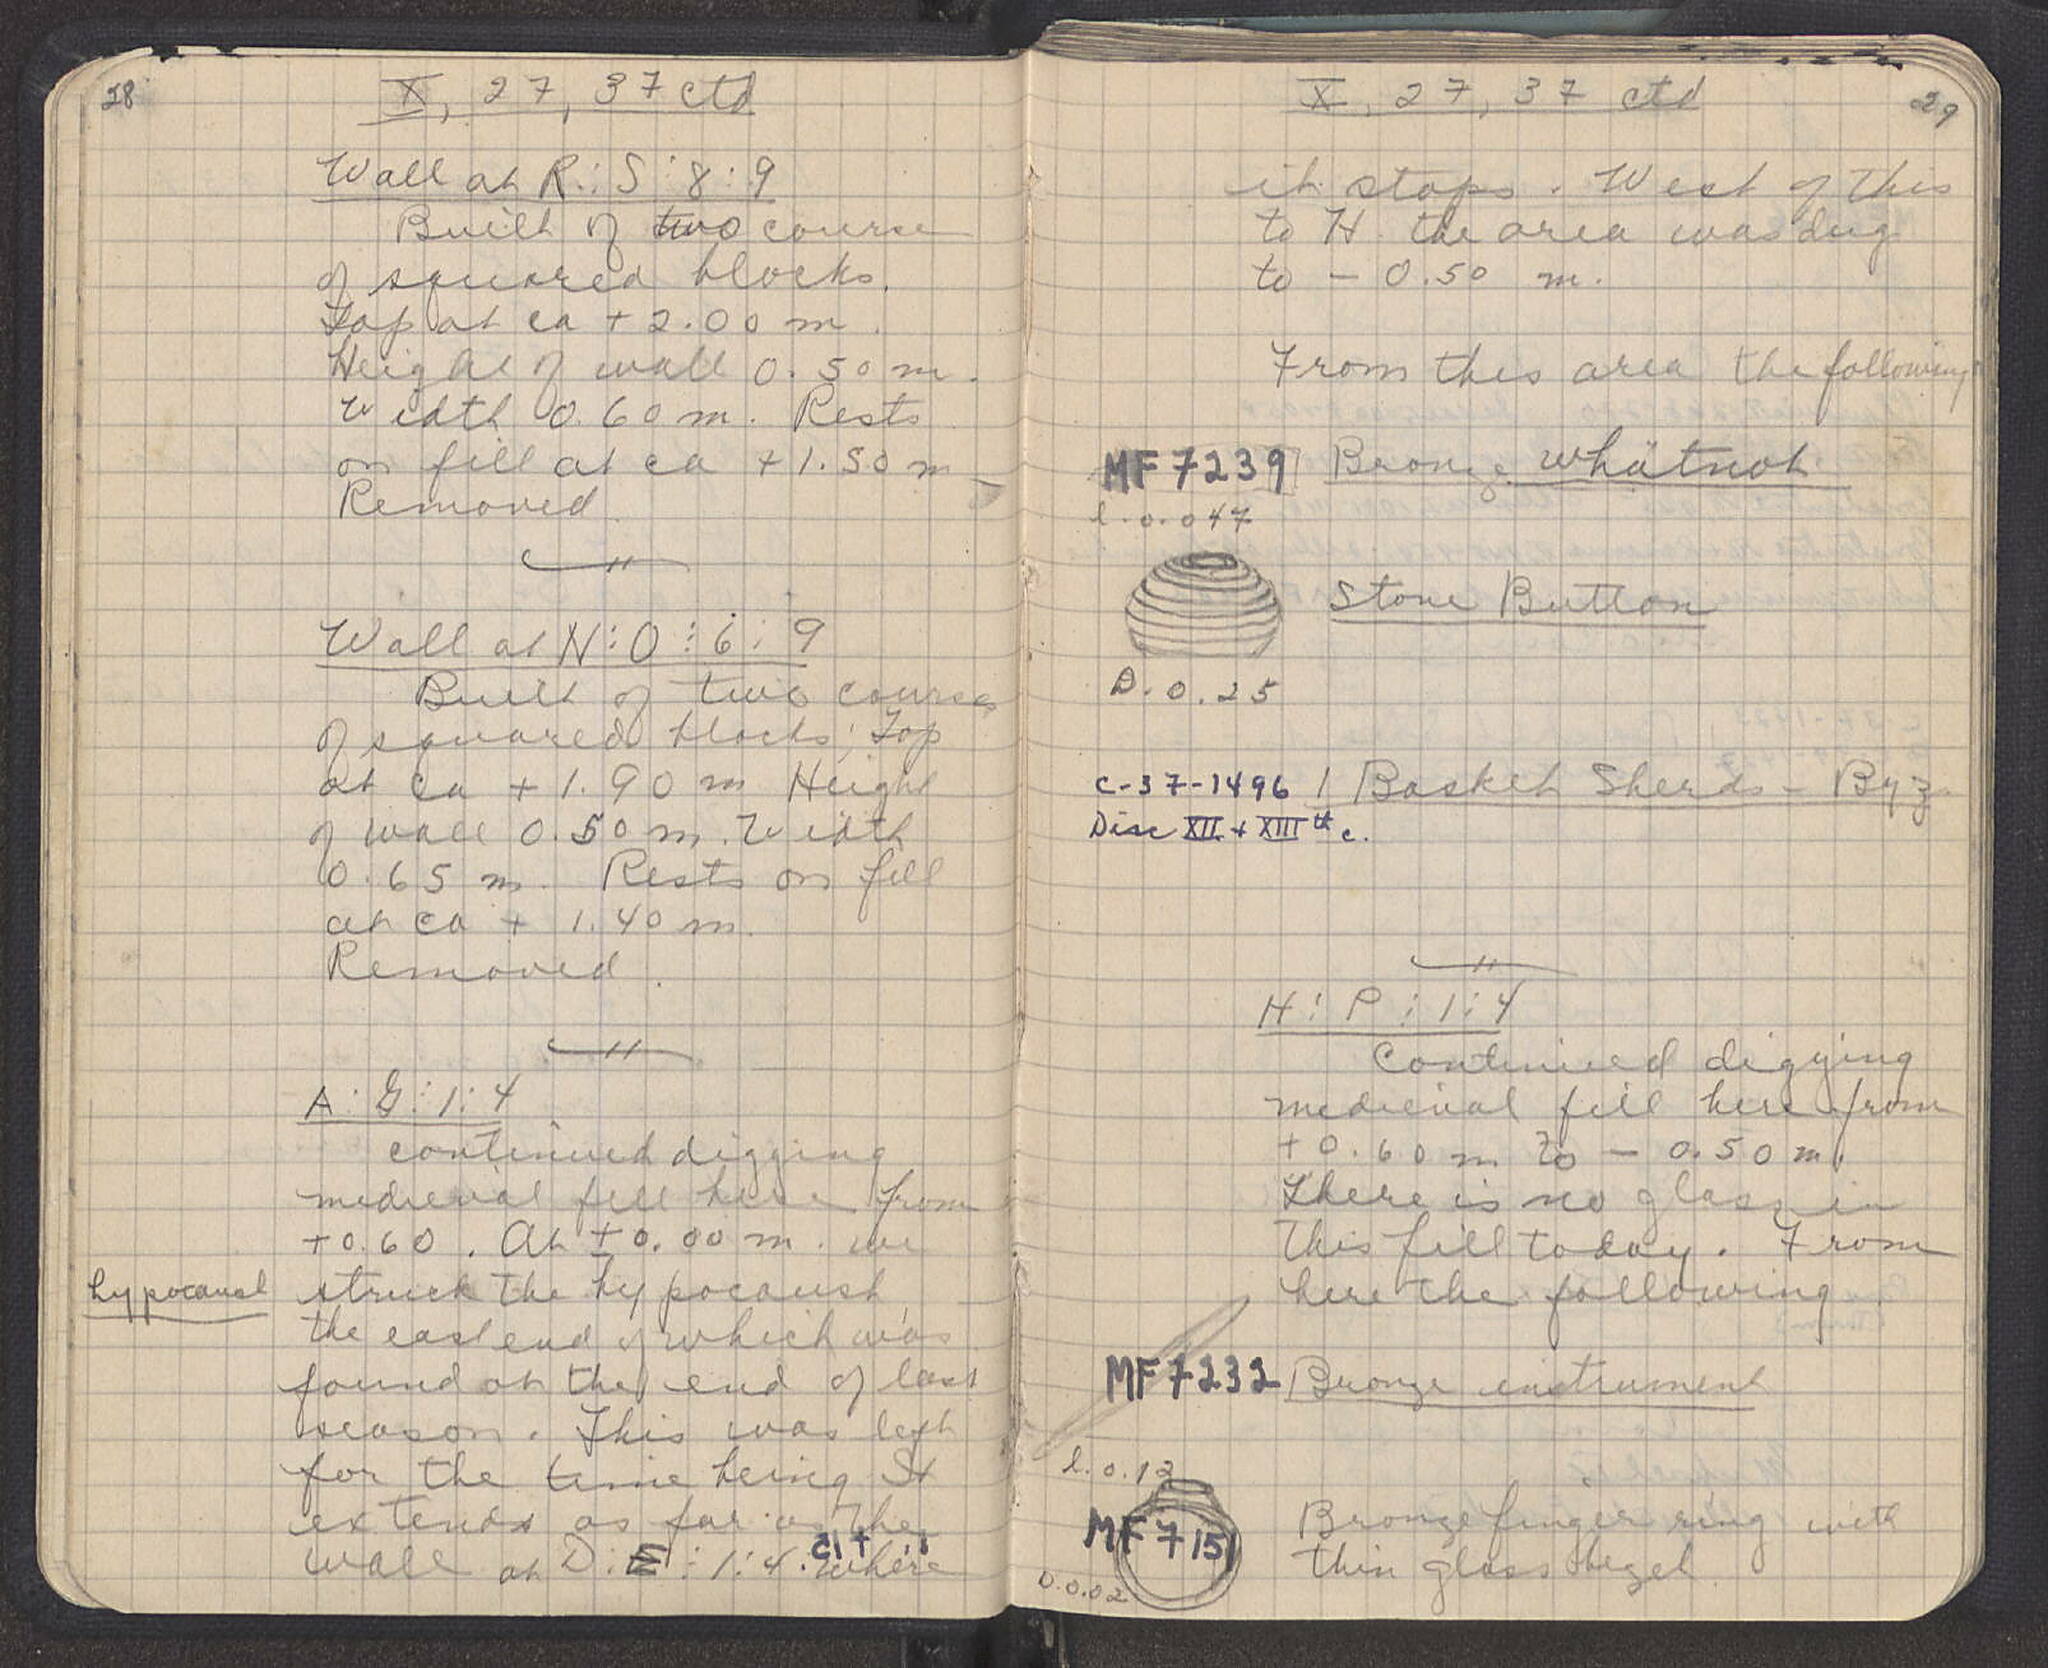 28
X, 27, 37 ctd
Wall at R:S:8:9
Built of two course
of squared blocks.
Top at ca + 2.00 m.
Height of wall 0.50 m.
Width 0.60 m. Rests
on fill at ca + 1.50 m
Removed.
Wall at N:O:6:9
Built of two courses
of squared blocks; Top
at ca + 1.90 m Height
of wall 0.50 m. Width
0.65 m. Rests on fill
at ca + 1.40 m.
Removed.
A:G:1:4
continued digging
medieval fill here from
+0.60. At ±0.00 m. we
hypocaust
struck the hypocaust,
the east end of which was
found at the end of last
season. This was left
for the time being It
extends as far as the
wall at D:E:1:4. where
X, 27, 37 ctd
29
it stops. West of this
to H the area was dug
to - 0.50 m.
From this area the following:
MF 7239 Bronze whatnot
l. 0.047
Stone Button
D. 0.25
C-37-1496 1 Basket Sherds - Byz.
Disc XII + XIIIth c.
H:P:1:4
Continued digging
medieval fill here from
+0.60 m to - 0.50 m.
There is no glass in
this fill today. From
here the following
MF 7232 Bronze instrument
l. 0.12
MF 7151 Bronze finger ring with
thin glass bezel.
D. 0.02